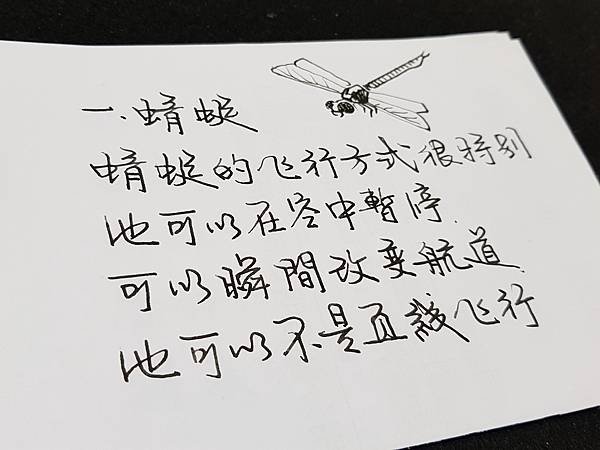 一、蜻蜓
蜻蜓的飞行方式很特别
他可以在空中暫停.
可以瞬間改变航道.
他可以不是直綫飞行